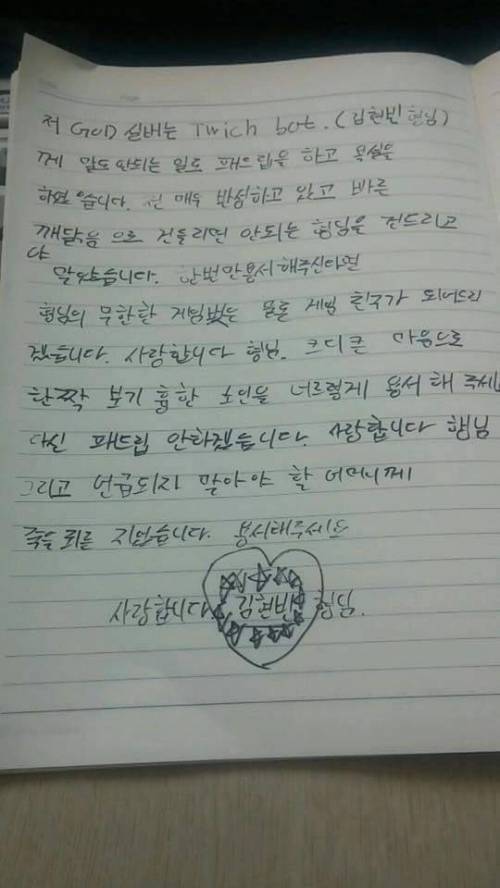 저 GOD 실버는 Twich bot. (김현빈 형님)
께 말도안되는 일로 패드립을 하고 욕설을
하였습니다. 전 매우 반성하고 있고 바른
깨닳음 으로 건들리면 안되는 형님을 건드리고
말았습니다. 한번만용서해주신다면
형님의 무한한 게임벗은 물론 게임 친구가 되어드리
겠습니다. 사랑합니다 형님. 크디큰 마음으로
한짝 보기 흉한 소인을 너르렇게 용서해 주세
다신 패드립 안하겠습니다. 사랑합니다 형님
그리고 언급되지 말아야 할 어머니께
죽을 죄를 지었습니다. 용서해주세요
사랑합니다. 김현빈 형님.